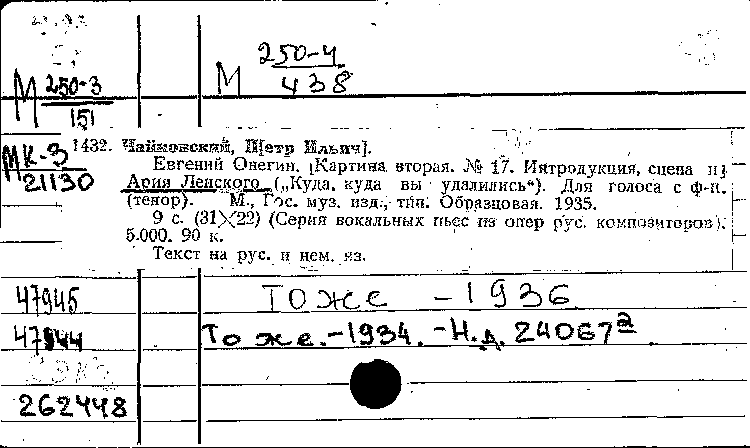 М 250-3
151
М 250-4
438
МК-3
21130
1432. Чайковский, П[етр Ильич].
Евгений Онегин. [Картина вторая. № 17. Интродукция, сцена и]
Ария Ленского („Куда, куда вы удалились“). Для голоса с ф-п.
(тенор). М., Гос. муз. изд., тип. Образцовая. 1935.
9 с. (31×22) (Серия вокальных пьес из опер рус. композиторов).
5.000. 90 к.
Текст на рус. и нем. яз.
47945
То же – 1936
47944
То же. – 1934. – Н.д. 24067а
262448